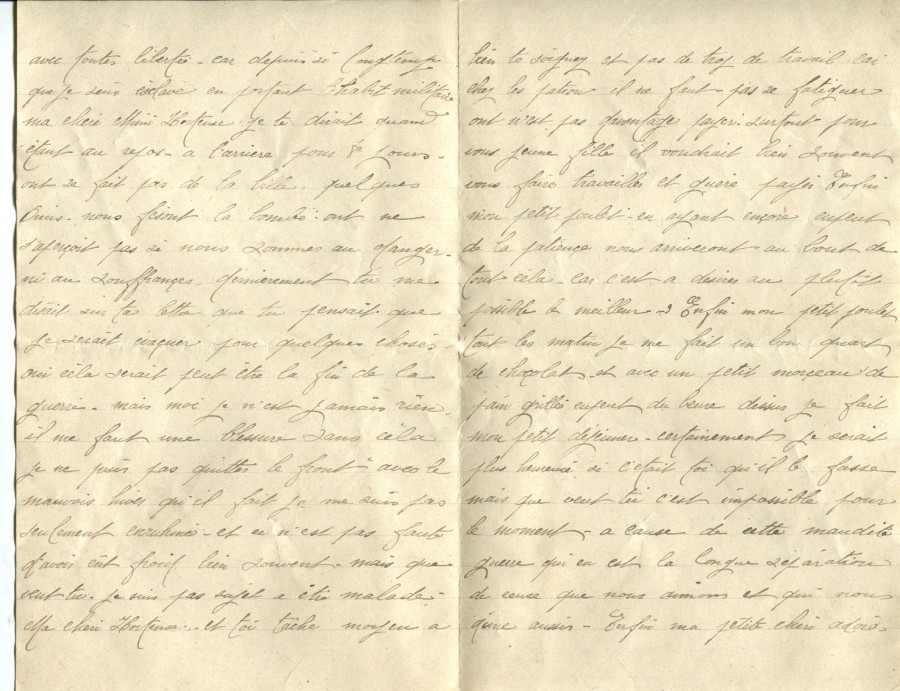 avec toutes libertée - car depuis si longtemps
que je suis esclave en portant l'habit militaire
ma chéri Mimi Hortense. je te dirait quand
étant au repos - a l'arriere pour 8 jours.
ont se fait pas de la bile. quelques
nous feront la bombe. ont ne
s'aperçoit pas si nous sommes au danger-
ni au Souffrances. dernierement tu me
disait sur ta lettre que tu pensait que
je serait évacuer pour quelques choses-
oui cela serait peut être la fin de la
guerre - mais moi je n'est jamais rien.
il me faut une blessure sans cela
je ne puis pas quitter le front - avec le
mauvais hiver qu'il fait je me suis pas
seulement enrhumé - et ce n'est pas faute
d'avoir eût froid bien souvent - mais que
veut tu - je suis pas sujet a être malade -
Ma chéri Hortense - et toi tâche moyen a
bien te soigner et pas de trop de travail car
chez les patron il ne faut pas se fatiguer
ont n'est pas davantages payer. surtout pour
vous jeune fille il voudrait bien souvent
vous faire travailler et guere payer Enfin
mon petit poulet - en ayant encore
de la patience nous arriveront au bout de
tout cela - car c'est a desirer au plutôt
possible le meilleur - Enfin mon petit poulet
tout les matin je me fait un bon quart
de chocolat - et avec un petit morceau de
pain grillée du beure dessus je fait
mon petit déjeuner - certainement je serait
plus heureux si c'etait toi qu'il le fasse
mais que veut tu c'est impossible pour
le moment - a cause de cette maudite
guerre qui en est la longue séparation
de ceux que nous aimons et qui nous
aussi - Enfin ma petite chéri